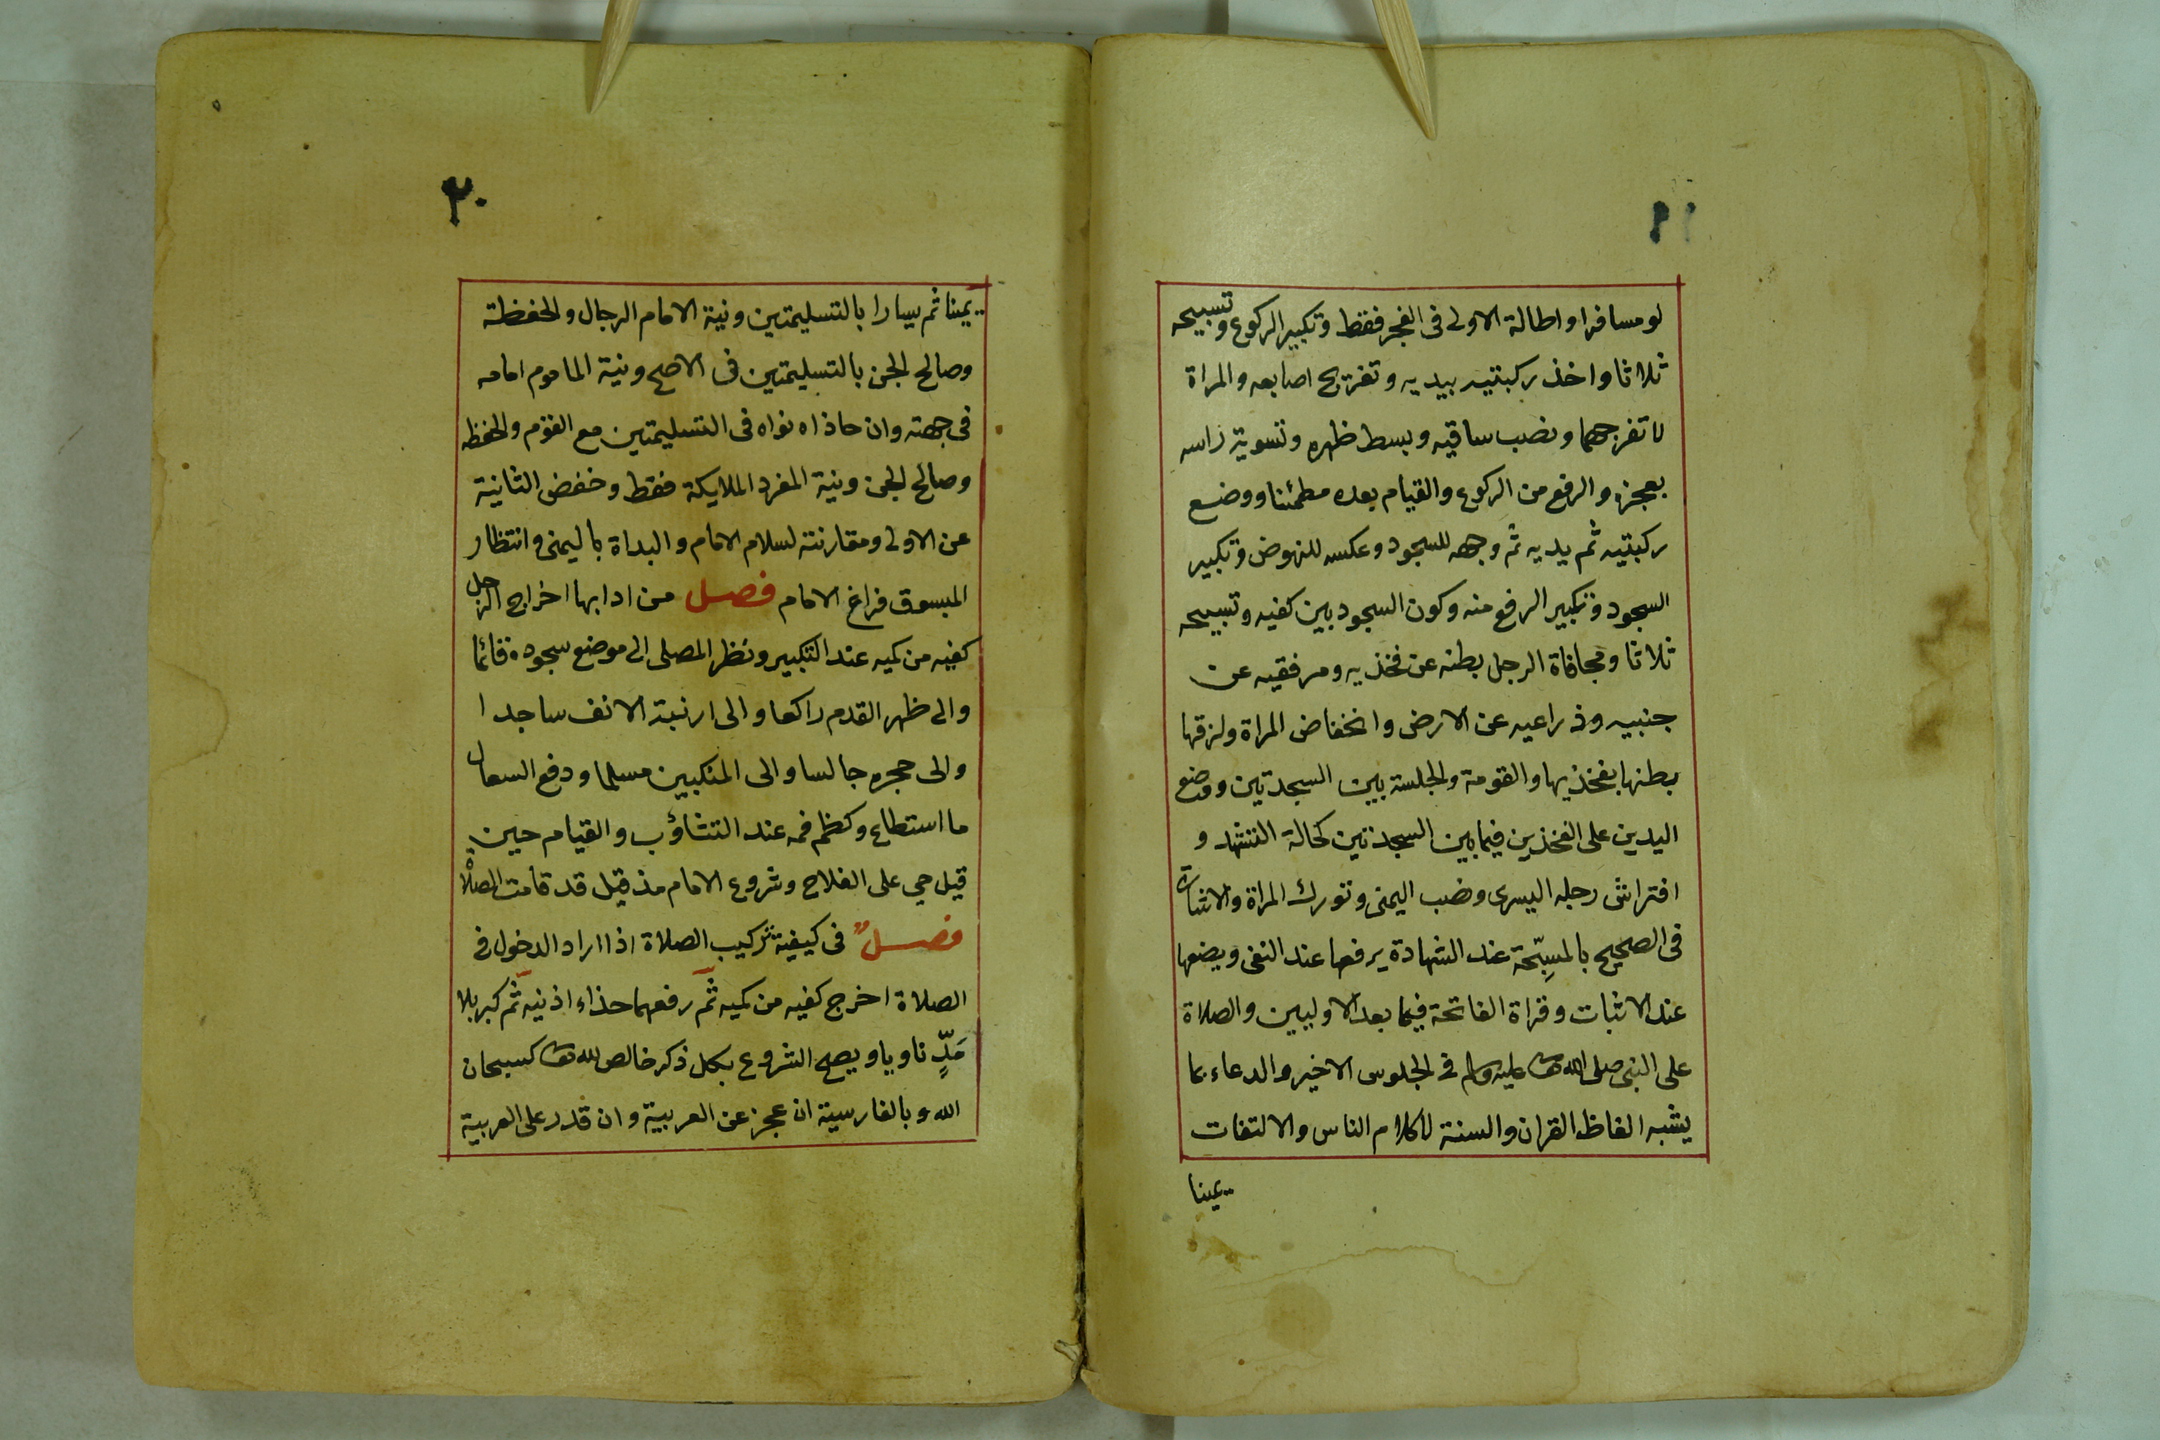 لو مسافرا واطالة الاولى فى الفجر فقط وتكبير الركوع وتسبيحه
ثلاثا واخذ ركبتيه بيديه وتفريج اصابعه والمراة
لا تفرجهما ونصب ساقيه وبسط ظهره وتسوية راسه
بعجزه والرفع من الركوع والقيام بعده مطمئنا ووضع
ركبتيه ثم يديه ثم وجهه للسجود وعكسه للنهوض وتكبير
السجود وتكبير الرفع منه وكون السجود بين كفيه وتسبيحه
ثلاثا ومجافاة الرجل بطنه عن فخذيه ومرفقيه عن
جنبيه وذراعيه عن الارض وانخفاض المراة ولزقها
بطنها بفخذيها والقومة والجلسة بين السجدتين ووضع
اليدين على الفخذين فيما بين السجدتين كحالة التشهد و
افتراش رجله اليسرى ونصب اليمنى وتورك المراة والاشارة
فى الصحيح بالمسبّحة عند الشهادة يرفعها عند النفى ويضعها
عند الاثبات وقراة الفاتحة فيما بعد الاوليين والصلاة
على النبى صلى الله عليه وسلم فى الجلوس الاخير والدعاء بما
يشبه الفاظ القران والسنة لا كلام الناس والالتفات
يمينا
٢٠
يمينا ثم يسارا بالتسليمتين ونية الامام الرجال والحفظة
وصالح الجن بالتسليمتين فى الاصح ونية الماموم امامه
فى جهته وان حاذاه نواه فى التسليمتين مع القوم والحفظه
وصالح الجن ونية المفرد الملايكة فقط وخفض الثانية
عن الاولى ومقارنته لسلام الامام والبداة باليمنى وانتظار
المبسوق فراغ الامام فصل من ادابها اخراج الرجل
كفيه من كميه عند التكبير ونظر المصلى الى موضع سجوده قائما
والى ظهر القدم راكعا والى ارنبة الانف ساجدا
والى حجره جالسا والى المنكبين مسلما ودفع السعال
ما استطاع وكظم فمه عند التثاؤب والقيام حين
قيل حي على الفلاح وشروع الامام مذ قيل قد قامت الصلاة
فصل فى كيفية تركيب الصلاة اذا اراد الدخول فى
الصلاة اخرج كفيه من كميه ثم رفعهما حذاء اذنيه ثم كبر بلا
مَدٍّ ناويا ويصح الشروع بكل ذكر خالص لله تعالى كسبحان
الله وبالفارسية ان عجز عن العربية وان قدر على العربية